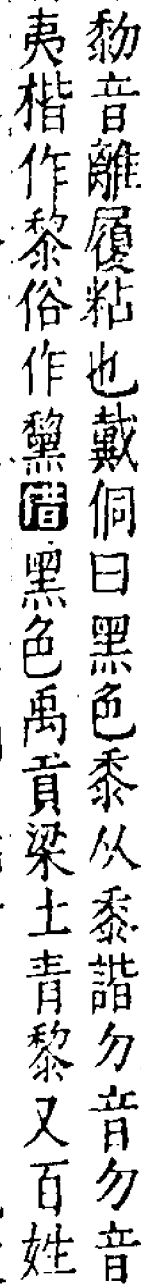 黎音離履粘也戴侗曰黑色黍从黍諧勿音勿音
夷楷作黎俗作黧借黑色禹貢梁土青黎又百姓